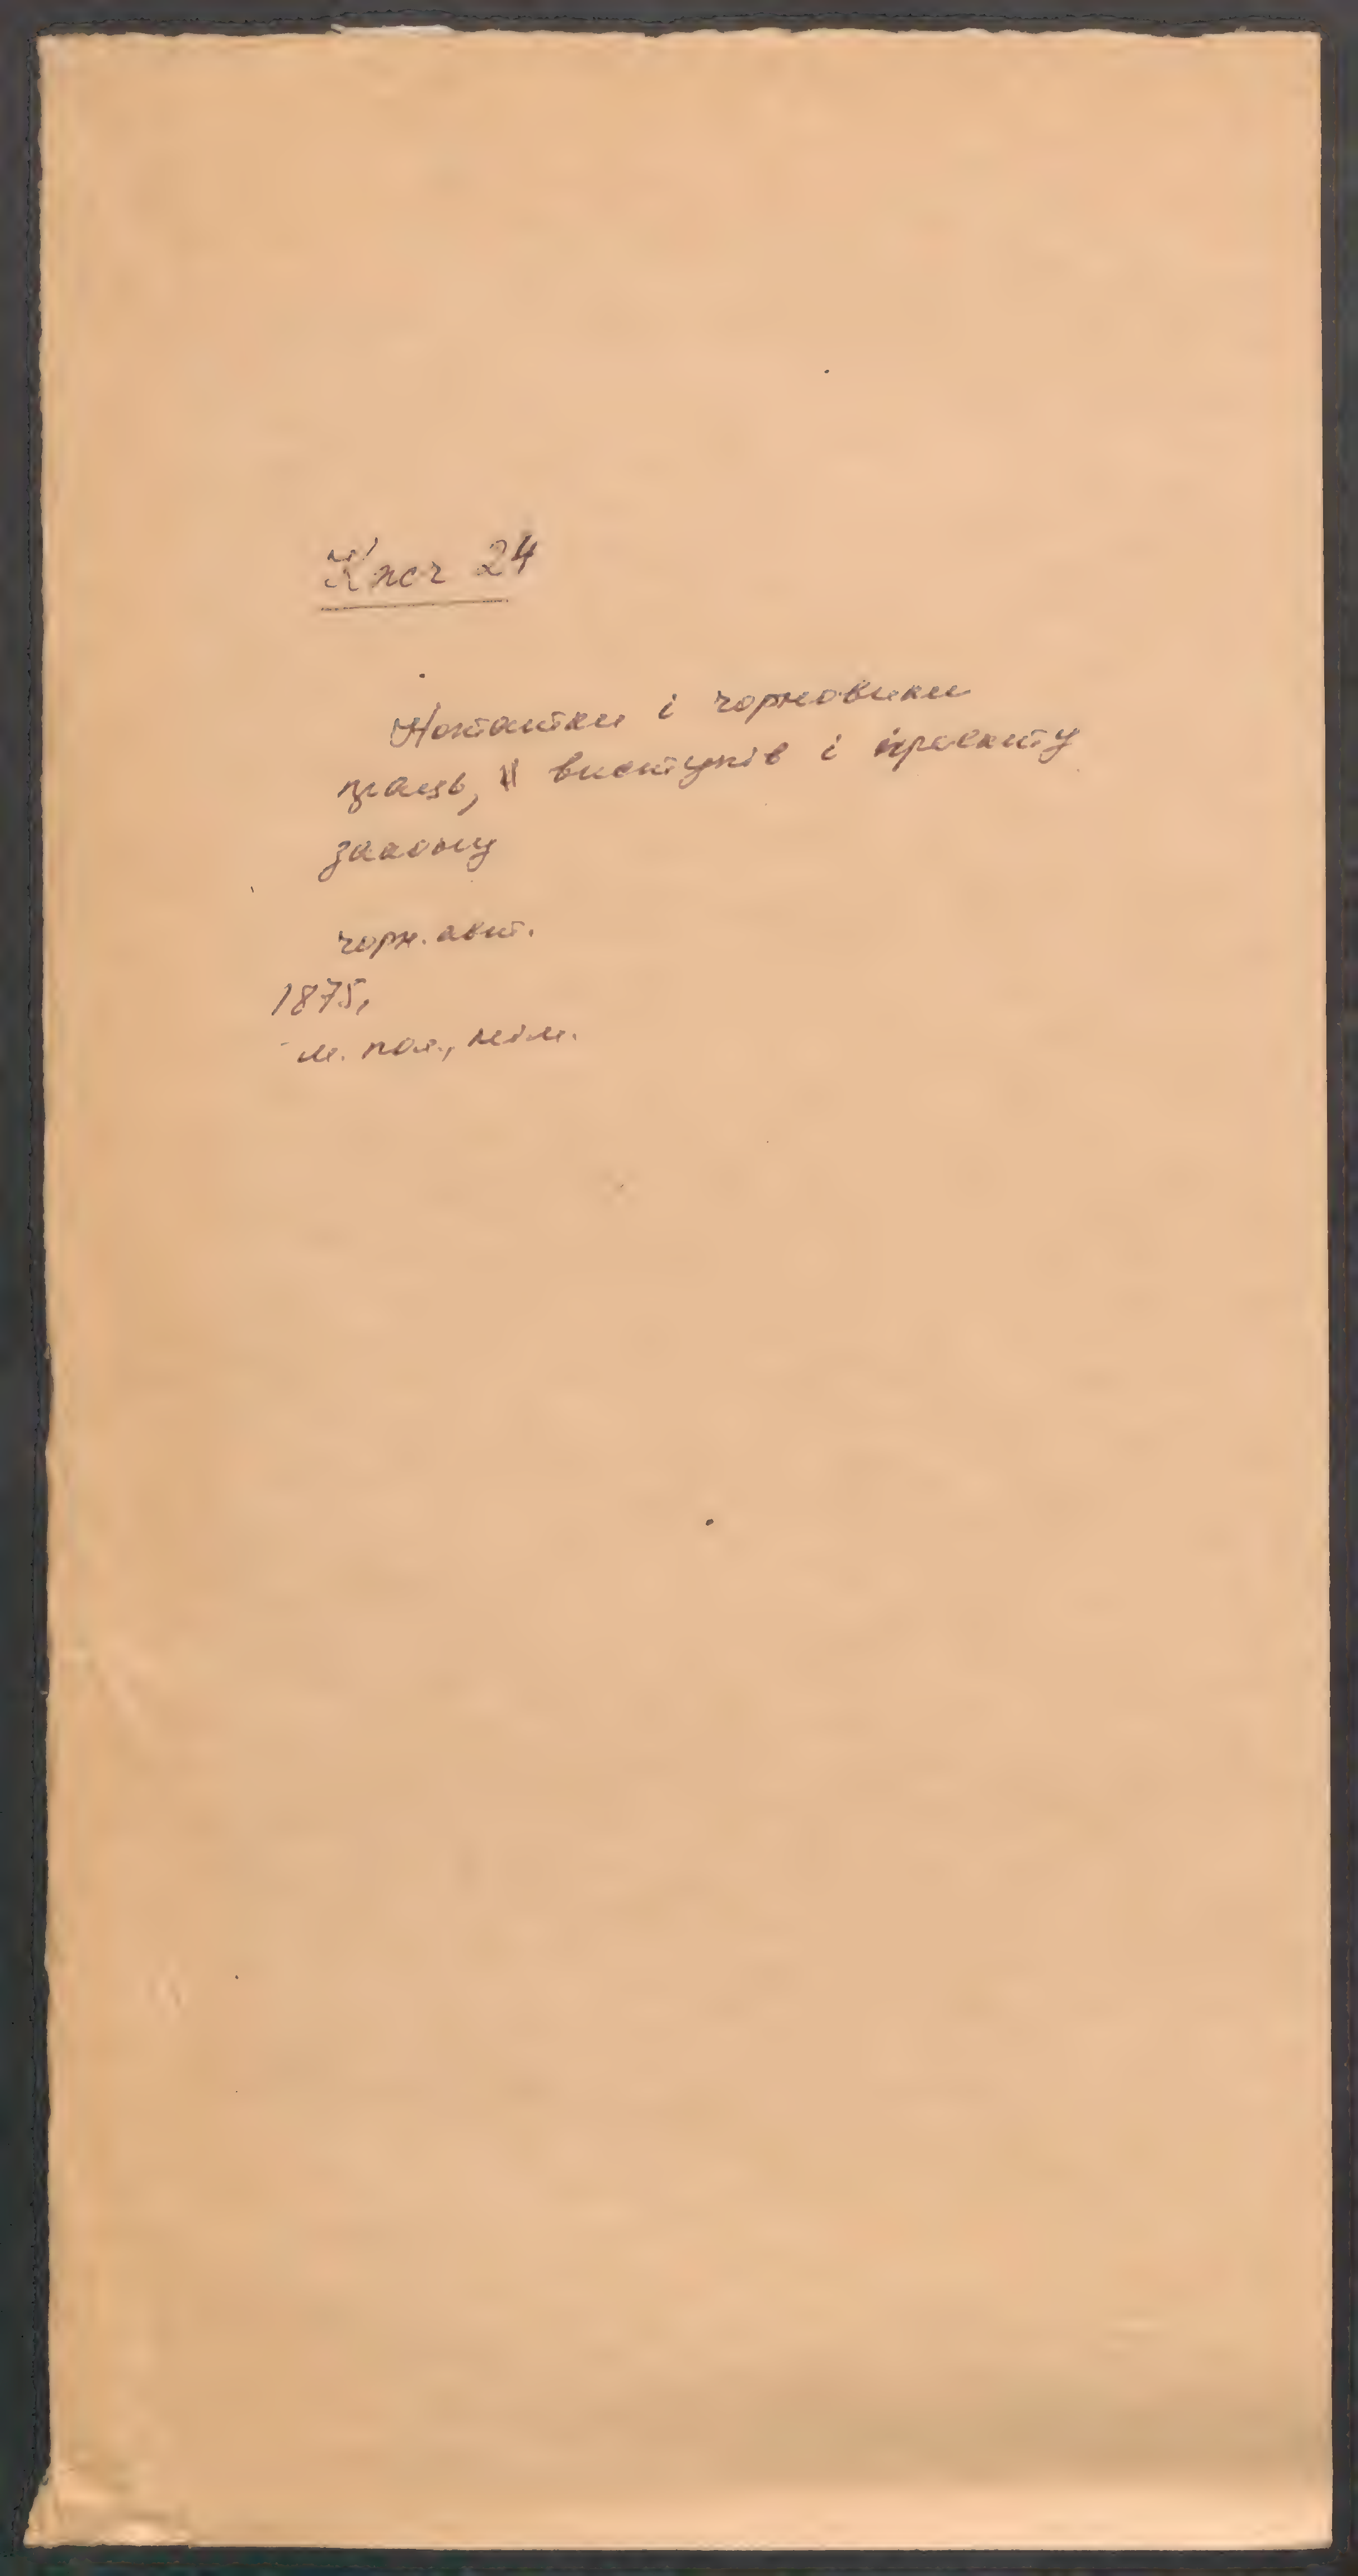 24
Нотатки і чорновики
праць, виступів і проекту
закону
чорн. авт.
1875,
м. пол., нім.